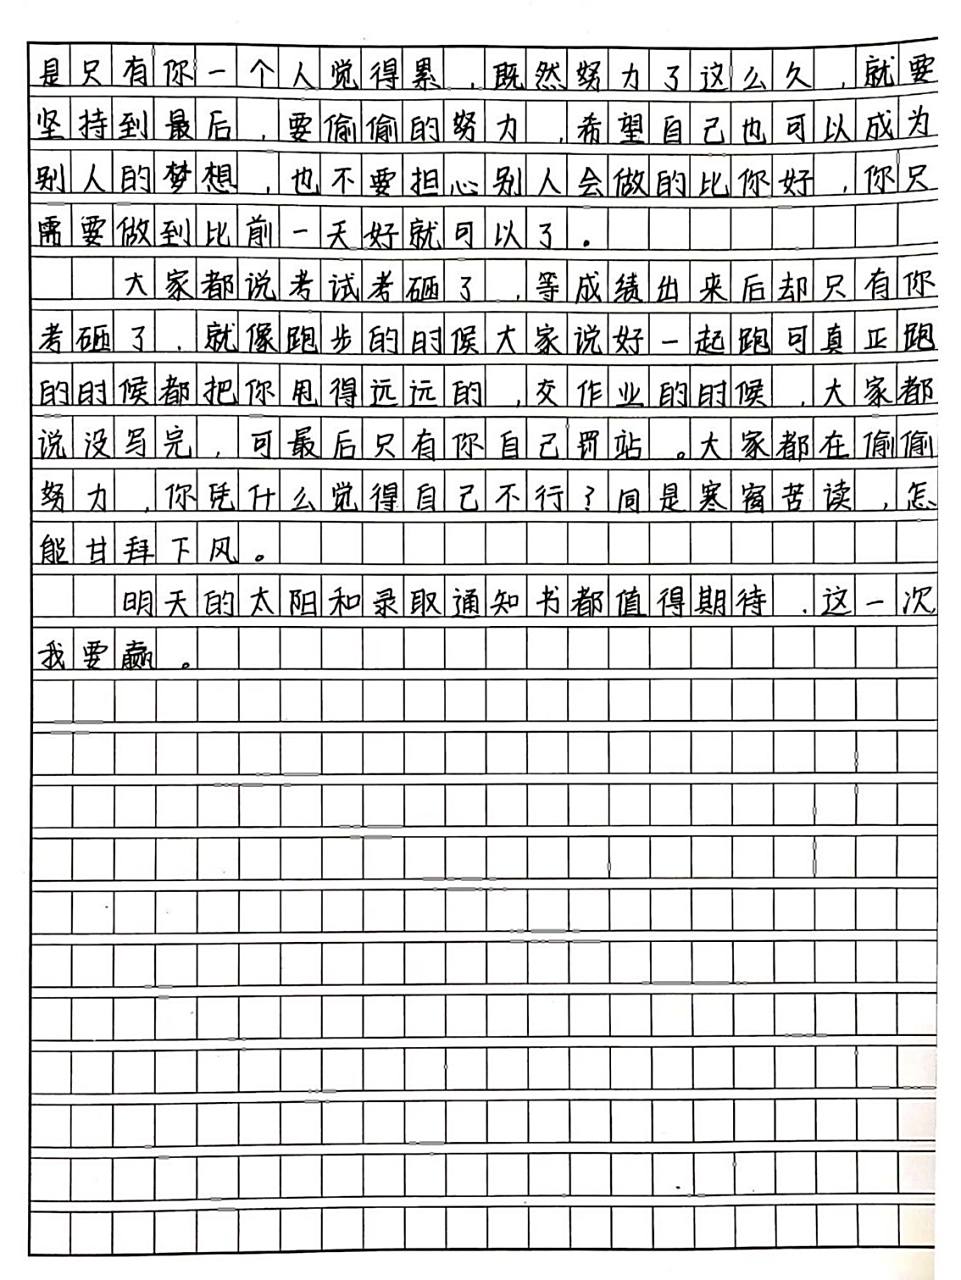 是只有你一个人觉得累，既然努力了这么久，就要
坚持到最后，要偷偷的努力，希望自己也可以成为
别人的梦想，也不要担心别人会做的比你好，你只
需要做到比前一天好就可以了。
大家都说考试考砸了，等成绩出来后却只有你
考砸了，就像跑步的时候大家说好一起跑可真正跑
的时候都把你甩得远远的，交作业的时候，大家都
说没写完，可最后只有你自己罚站。大家都在偷偷
努力，你凭什么觉得自己不行？同是寒窗苦读，怎
能甘拜下风。
明天的太阳和录取通知书都值得期待，这一次
我要赢。